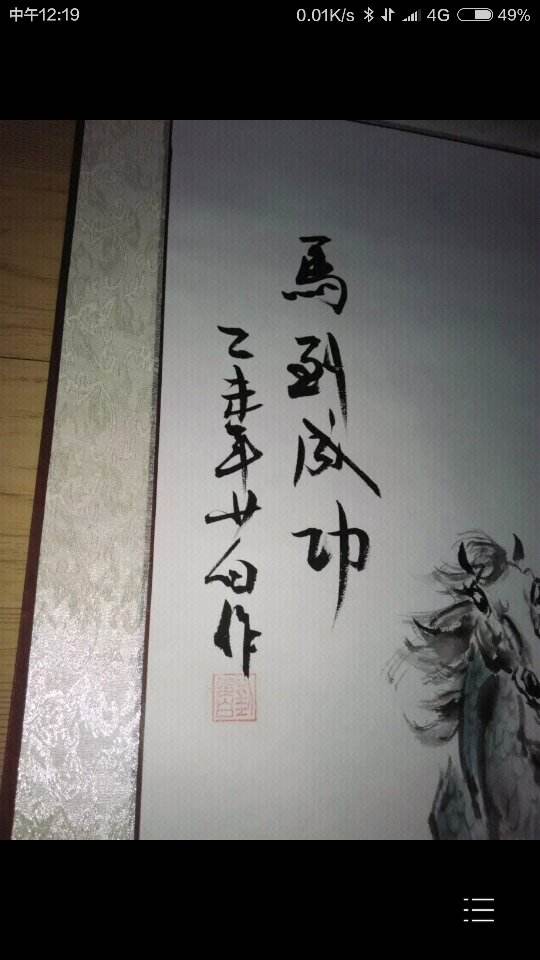 中午12:19 0.01K/s 4G 49%
馬到成功
乙未年 作